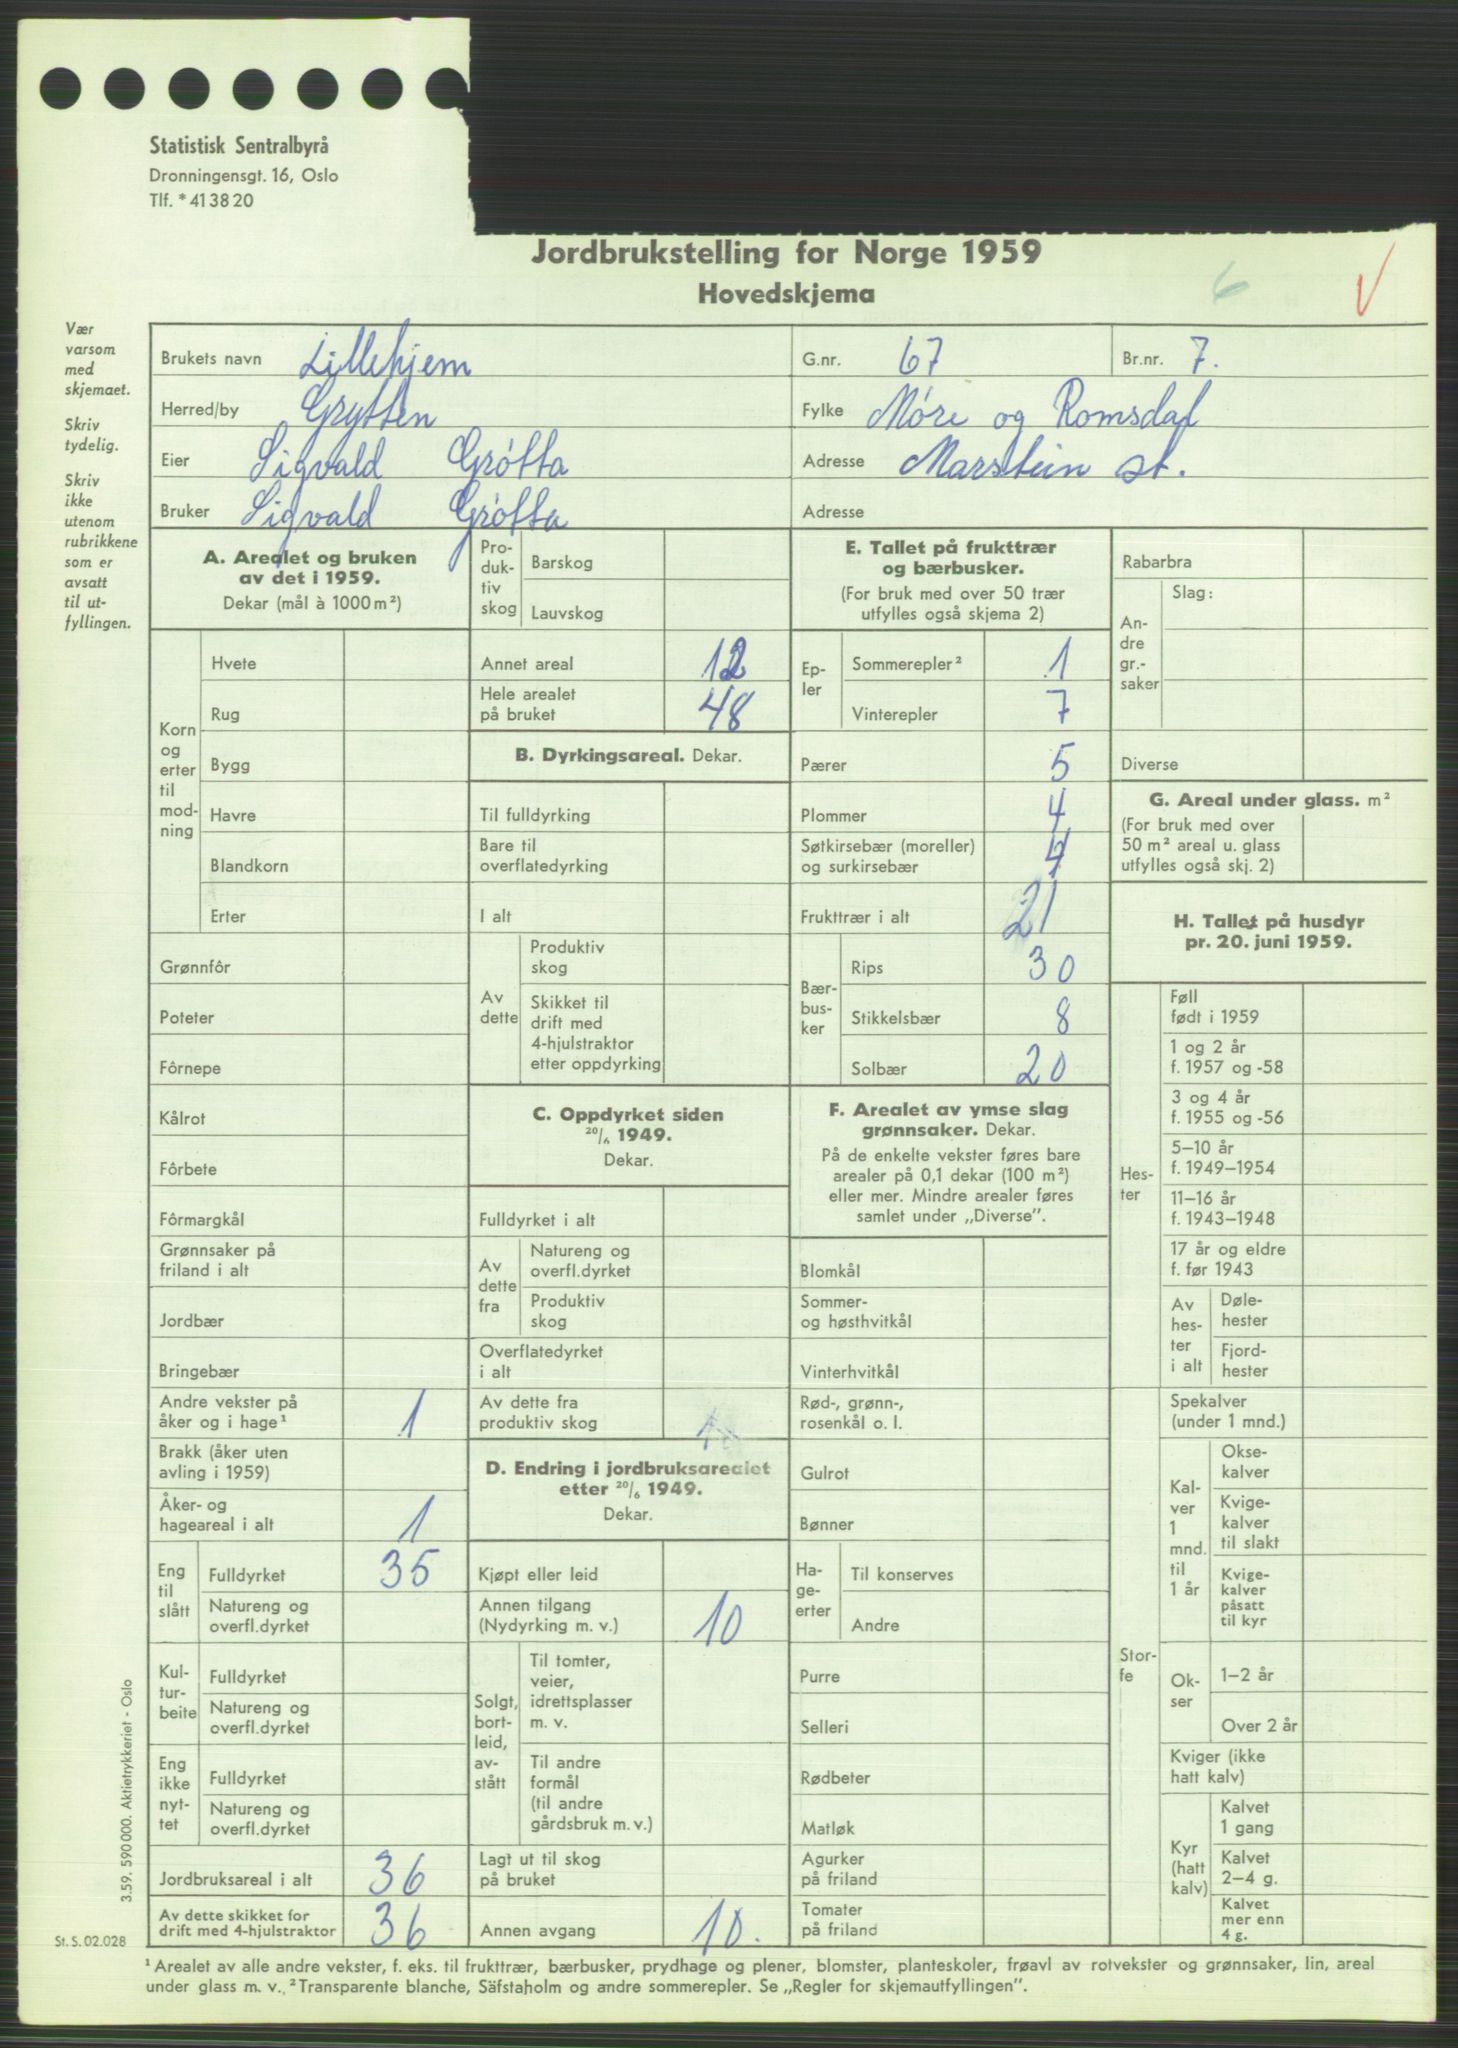 Statistisk Sentralbyrå
Dronningensgt. 16, Oslo
Tlf. *41 38 20
Jordbrukstelling for Norge 1959
Hovedskjema
6
Vær
varsom
med
skjemaet.
Skriv
tydelig.
Skriv
ikke
utenom
rubrikkene
som er
avsatt
til ut-
fyllingen.
Brukets navn Lillehjem G.nr. 67 Br.nr. 7.
Herred/by Grytten Fylke Møre og Romsdal
Eier Sigvald Grøtta Adresse Marstein st.
Bruker Sigvald Grøtta Adresse
A. Arealet og bruken
av det i 1959.
Dekar (mål à 1000 m²)
Korn
og
erter
til
mod-
ning
Hvete
Rug
Bygg
Havre
Blandkorn
Erter
Grønnfôr
Poteter
Fôrnepe
Kålrot
Fôrbete
Fôrmargkål
Grønnsaker på
friland i alt
Jordbær
Bringebær
Andre vekster på
åker og i hage¹ 1
Brakk (åker uten
avling i 1959)
Åker- og
hageareal i alt 1
Eng
til
slått
Fulldyrket 35
Natureng og
overfl.dyrket
Kul-
tur-
beite
Fulldyrket
Natureng og
overfl.dyrket
Eng
ikke
nyt-
tet
Fulldyrket
Natureng og
overfl.dyrket
Jordbruksareal i alt 36
Av dette skikket for
drift med 4-hjulstraktor 36
Pro-
duk-
tiv
skog
Barskog
Lauvskog
Annet areal 12
Hele arealet
på bruket 48
B. Dyrkingsareal. Dekar.
Til fulldyrking
Bare til
overflatedyrking
I alt
Av
dette
Produktiv
skog
Skikket til
drift med
4-hjulstraktor
etter oppdyrking
C. Oppdyrket siden
20/6 1949.
Dekar.
Fulldyrket i alt
Av
dette
fra
Natureng og
overfl.dyrket
Produktiv
skog
Overflatedyrket
i alt
Av dette fra
produktiv skog
D. Endring i jordbruksarealet
etter 20/6 1949.
Dekar.
Kjøpt eller leid
Annen tilgang
(Nydyrking m. v.) 10
Solgt,
bort-
leid,
av-
stått
Til tomter,
veier,
idrettsplasser
m. v.
Til andre
formål
(til andre
gårdsbruk m. v.)
Lagt ut til skog
på bruket
Annen avgang 10.
E. Tallet på frukttrær
og bærbusker.
(For bruk med over 50 trær
utfylles også skjema 2)
Ep-
ler
Sommerepler² 1
Vinterepler 7
Pærer 5
Plommer 4
Søtkirsebær (moreller)
og surkirsebær 4
Frukttrær i alt 21
Bær-
bus-
ker
Rips 30
Stikkelsbær 8
Solbær 20
F. Arealet av ymse slag
grønnsaker. Dekar.
På de enkelte vekster føres bare
arealer på 0,1 dekar (100 m²)
eller mer. Mindre arealer føres
samlet under „Diverse".
Blomkål
Sommer-
og høsthvitkål
Vinterhvitkål
Rød-, grønn-,
rosenkål o. l.
Gulrot
Bønner
Ha-
ge-
erter
Til konserves
Andre
Purre
Selleri
Rødbeter
Matløk
Agurker
på friland
Tomater
på friland
Rabarbra
An-
dre
gr.-
saker
Slag:
Diverse
G. Areal under glass. m²
(For bruk med over
50 m² areal u. glass
utfylles også skj. 2)
H. Tallet på husdyr
pr. 20. juni 1959.
Hes-
ter
Føll
født i 1959
1 og 2 år
f. 1957 og -58
3 og 4 år
f. 1955 og -56
5–10 år
f. 1949–1954
11–16 år
f. 1943–1948
17 år og eldre
f. før 1943
Av
hes-
ter
i alt
Døle-
hester
Fjord-
hester
Stor-
fe
Spekalver
(under 1 mnd.)
Kal-
ver
1
mnd.
til
1 år
Okse-
kalver
Kvige-
kalver
til slakt
Kvige-
kalver
påsatt
til kyr
Ok-
ser
1–2 år
Over 2 år
Kviger (ikke
hatt kalv)
Kyr
(hatt
kalv)
Kalvet
1 gang
Kalvet
2–4 g.
Kalvet
mer enn
4 g.
3.59. 590 000. Aktietrykkeriet - Oslo
St. S. 02.028
¹ Arealet av alle andre vekster, f. eks. til frukttrær, bærbusker, prydhage og plener, blomster, planteskoler, frøavl av rotvekster og grønnsaker, lin, areal
under glass m. v. ² Transparente blanche, Säfstaholm og andre sommerepler. Se „Regler for skjemautfyllingen".